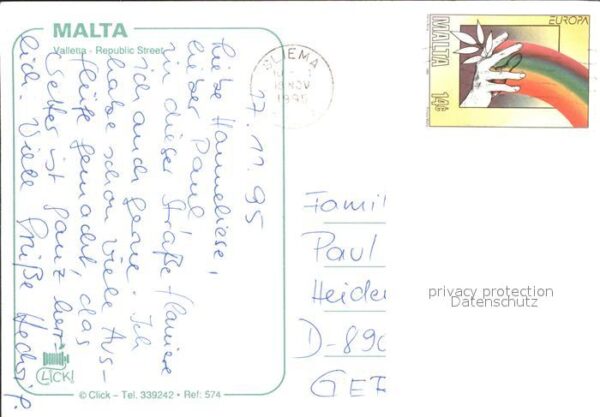 MALTA
Valletta - Republic Street
17.11.95
Liebe Hanneliese,
lieber Paul,
in dieser Straße flaniere
ich auch gerne. Ich
habe schon viele Aus-
flüge gemacht, das
Wetter ist ganz herr-
lich. Viele Grüße
CLICK!
© Click – Tel. 339242 • Ref: 574
SLIEMA
NOV
1995
EUROPA
MALTA 14c
Famil
Paul
Heiden
D-890
GER
privacy protection
Datenschutz